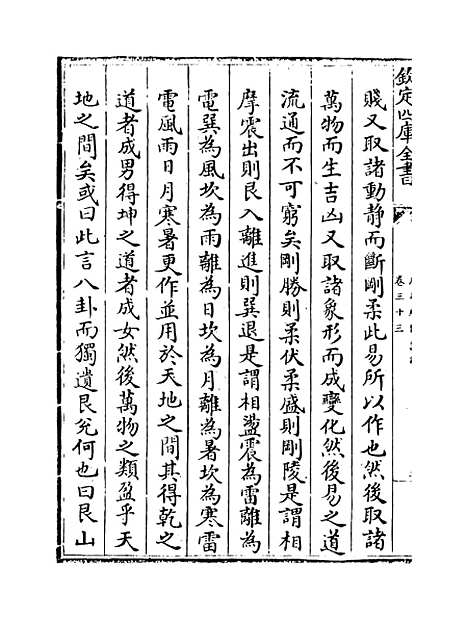 欽定四庫全書
卷三十三
賤又取諸動靜而斷剛柔此易所以作也然後取諸
萬物而生吉凶又取諸象形而成變化然後易之道
流通而不可窮矣剛勝則柔伏柔盛則剛陵是謂相
摩震出則艮入離進則巽退是謂相盪震為雷離為
電巽為風坎為雨離為日坎為月離為暑坎為寒雷
電風雨日月寒暑更作並用於天地之間其得乾之
道者成男得坤之道者成女然後萬物之類盈乎天
地之間矣或曰此言八卦而獨遺艮兊何也曰艮山